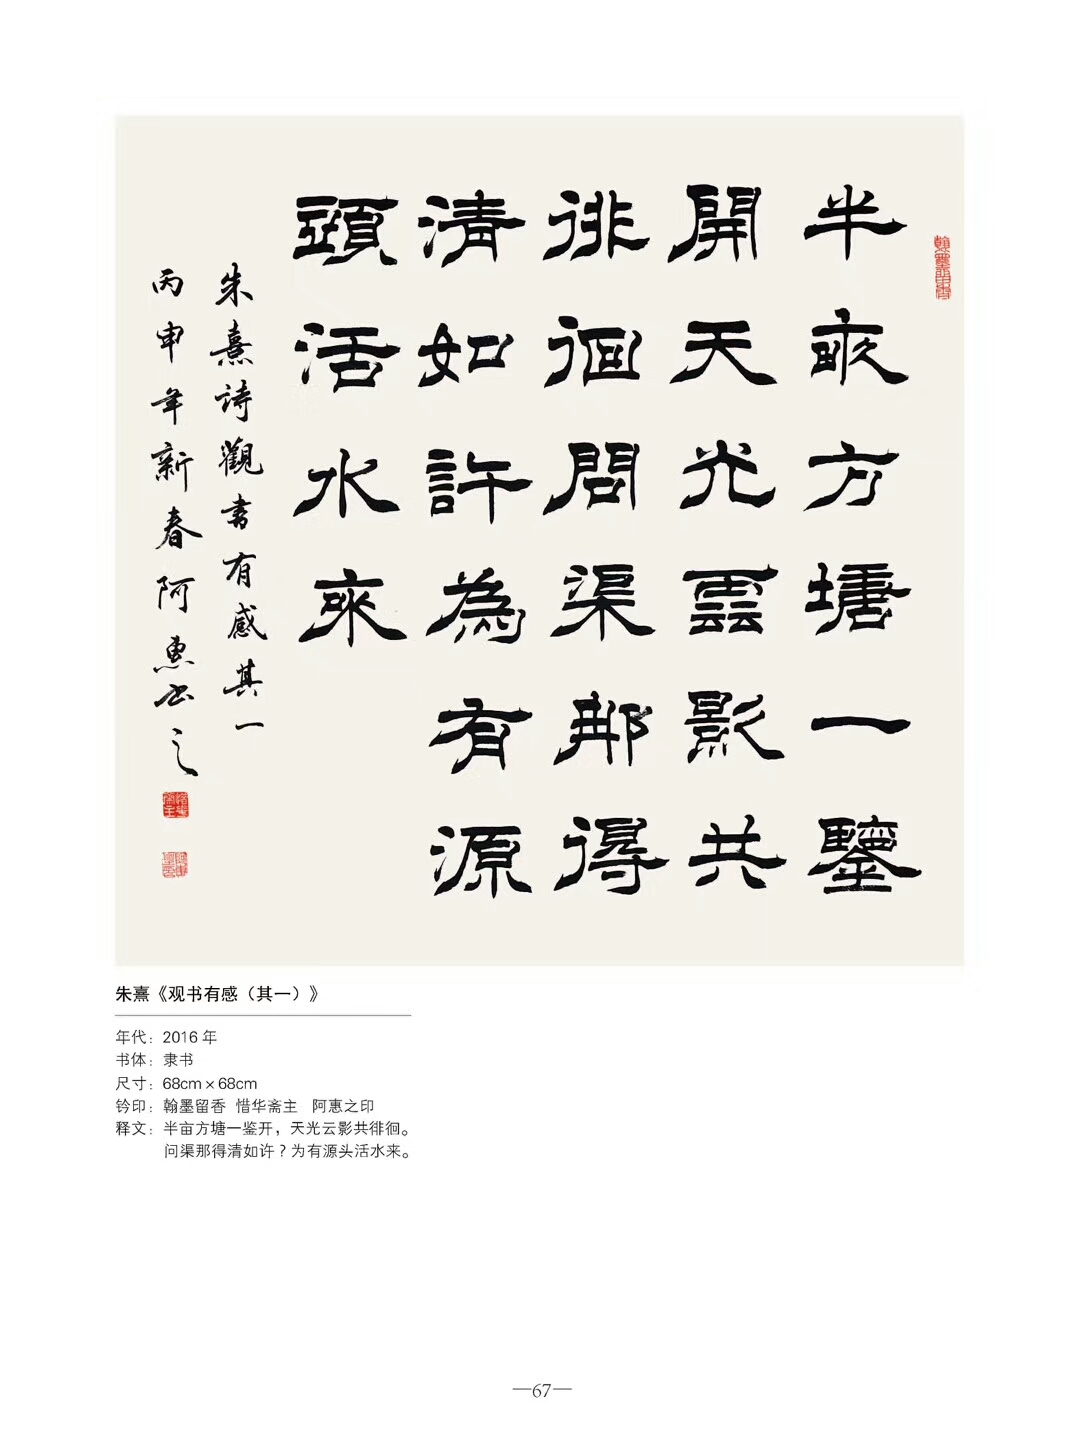 半畝方塘一鑒
開天光雲影共
徘徊問渠那得
清如許為有源
頭活水來
朱熹詩觀書有感其一
丙申年新春阿惠书之
翰墨留香
朱熹《观书有感（其一）》
年代：2016 年
书体：隶书
尺寸：68cm × 68cm
钤印：翰墨留香 惜华斋主 阿惠之印
释文：半亩方塘一鉴开，天光云影共徘徊。
问渠那得清如许？为有源头活水来。
—67—